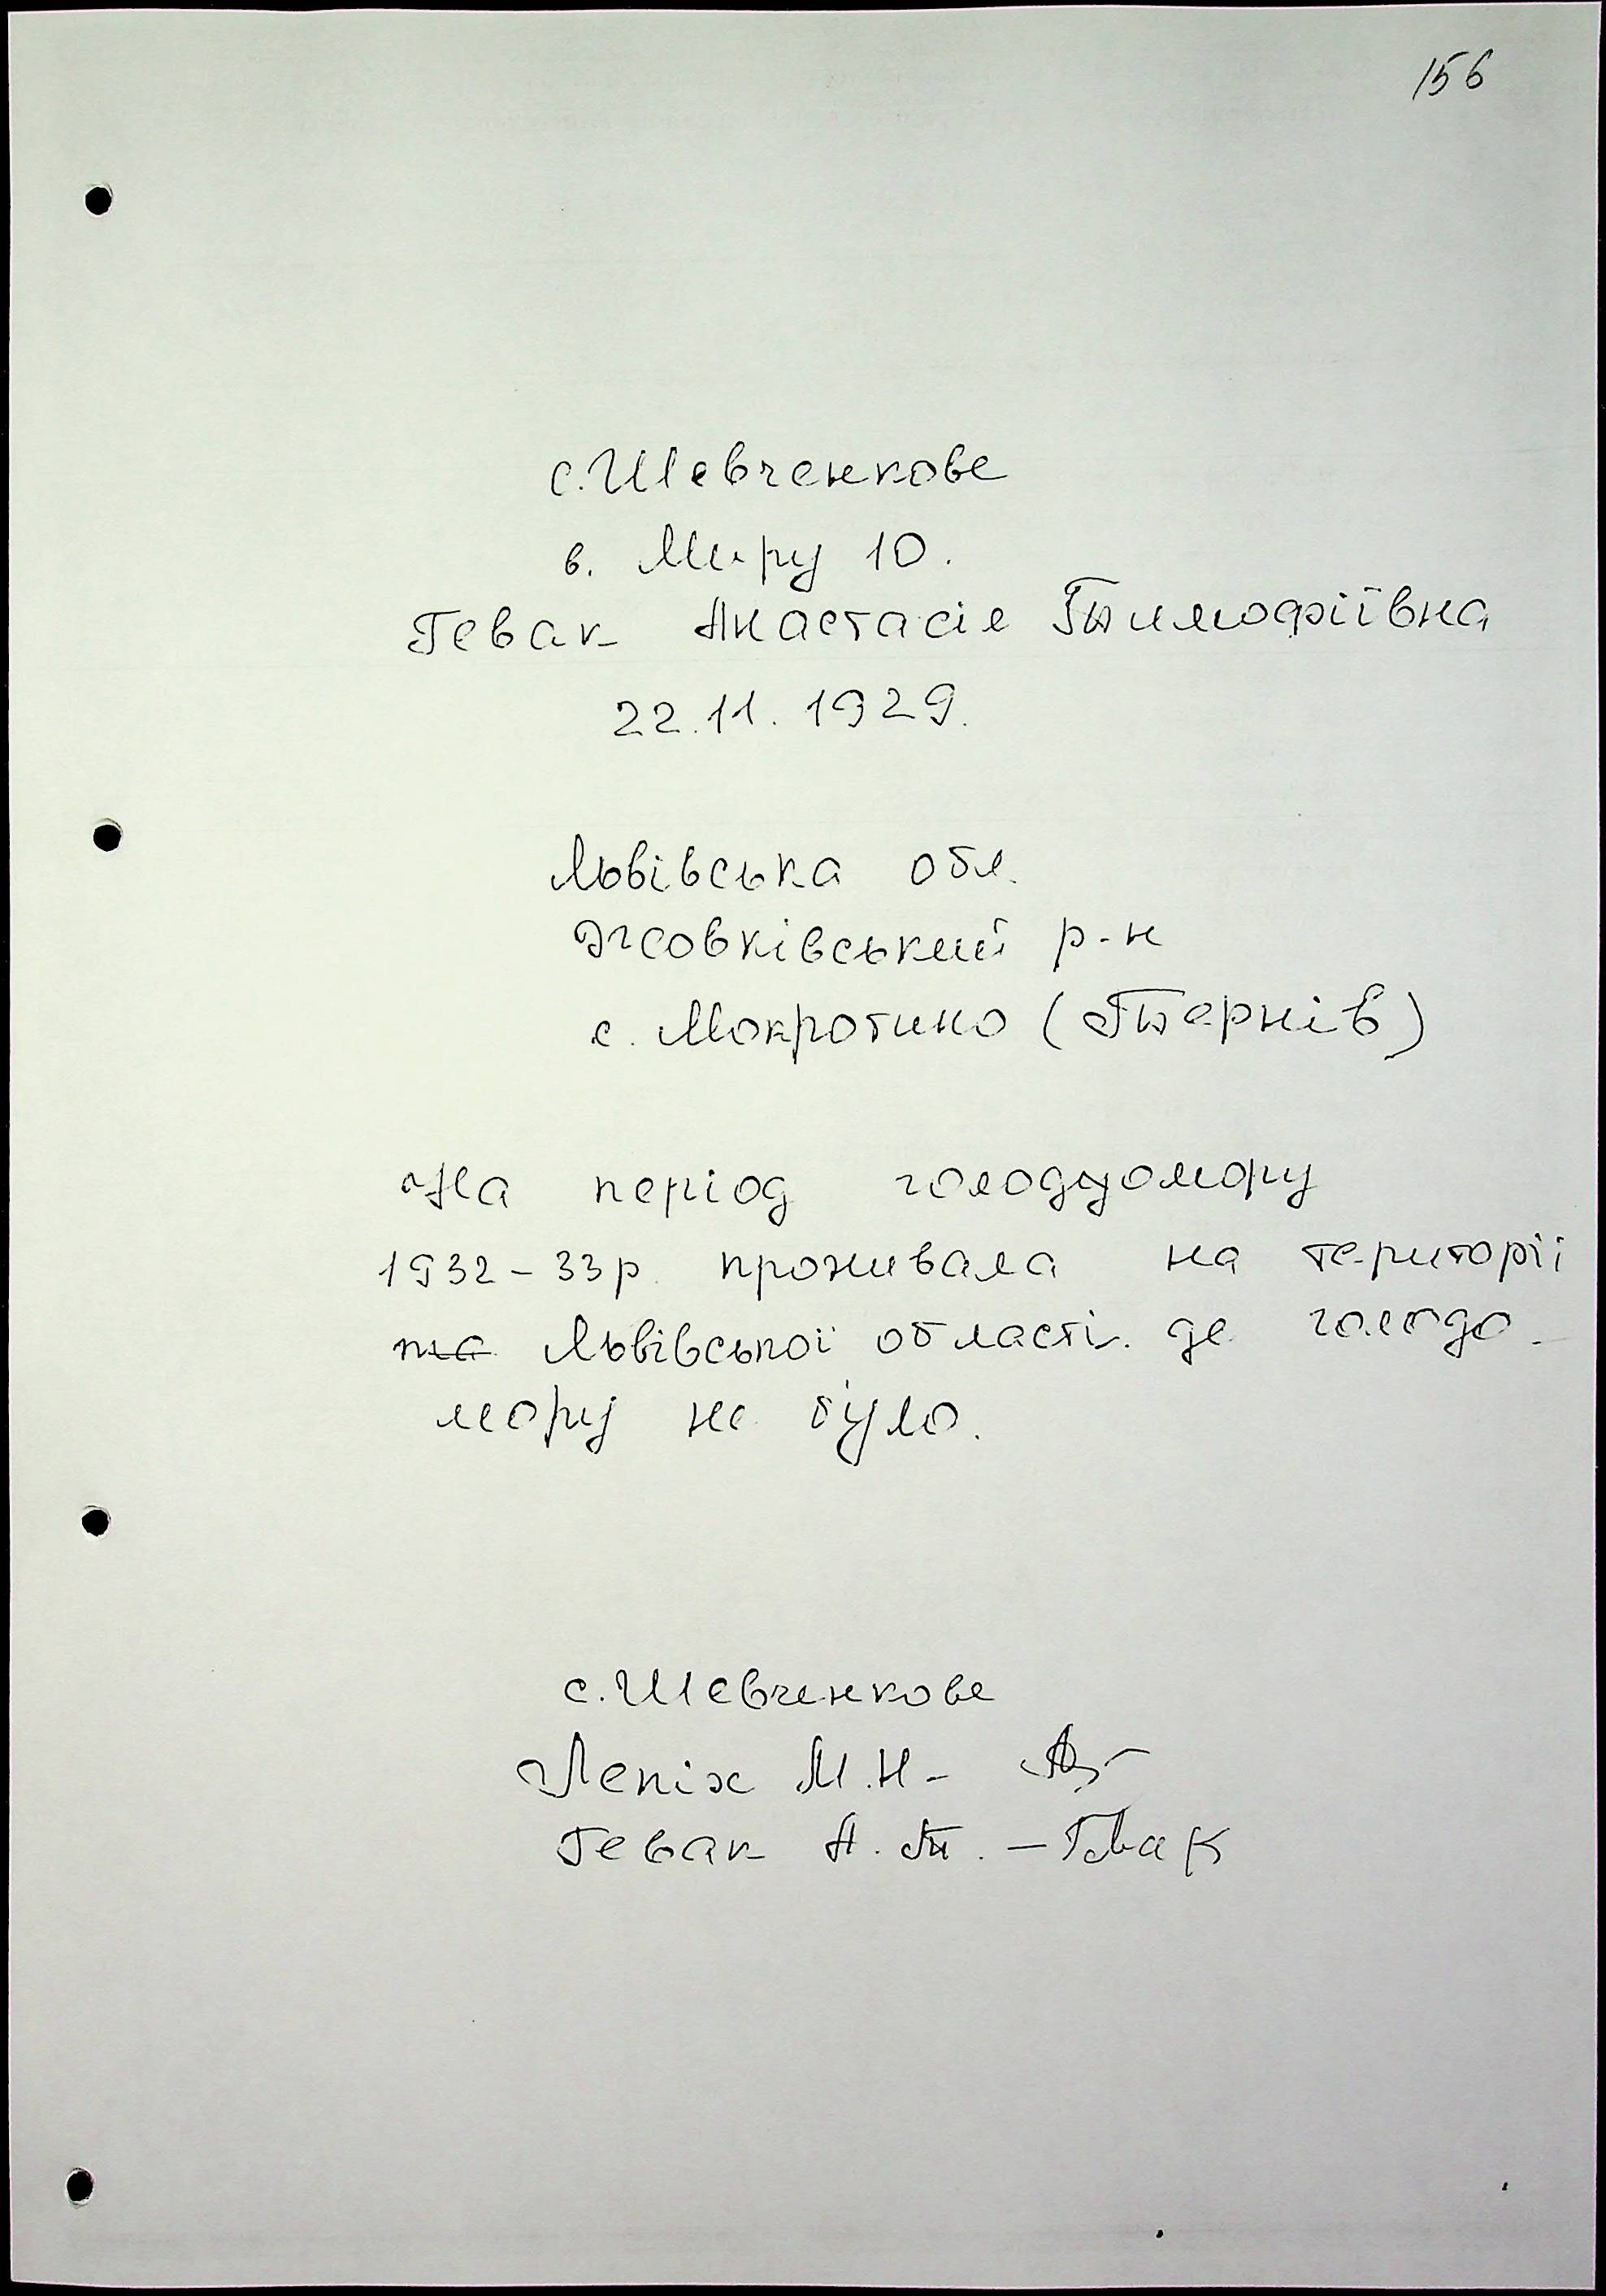 156
с. Шевченкове
в. Миру 10.
Гевак Анастасія Тимофіївна
22.11.1929.
Львівська обл.
Жовківський р-н
с. Мокротино (Тернів)
На період голодуомору
1932-33р. проживала на території
на Львівської області де голодо-
мору не було.
с. Шевченкове
Лепіх М.Н-
Гевак А.Т. - Гевак